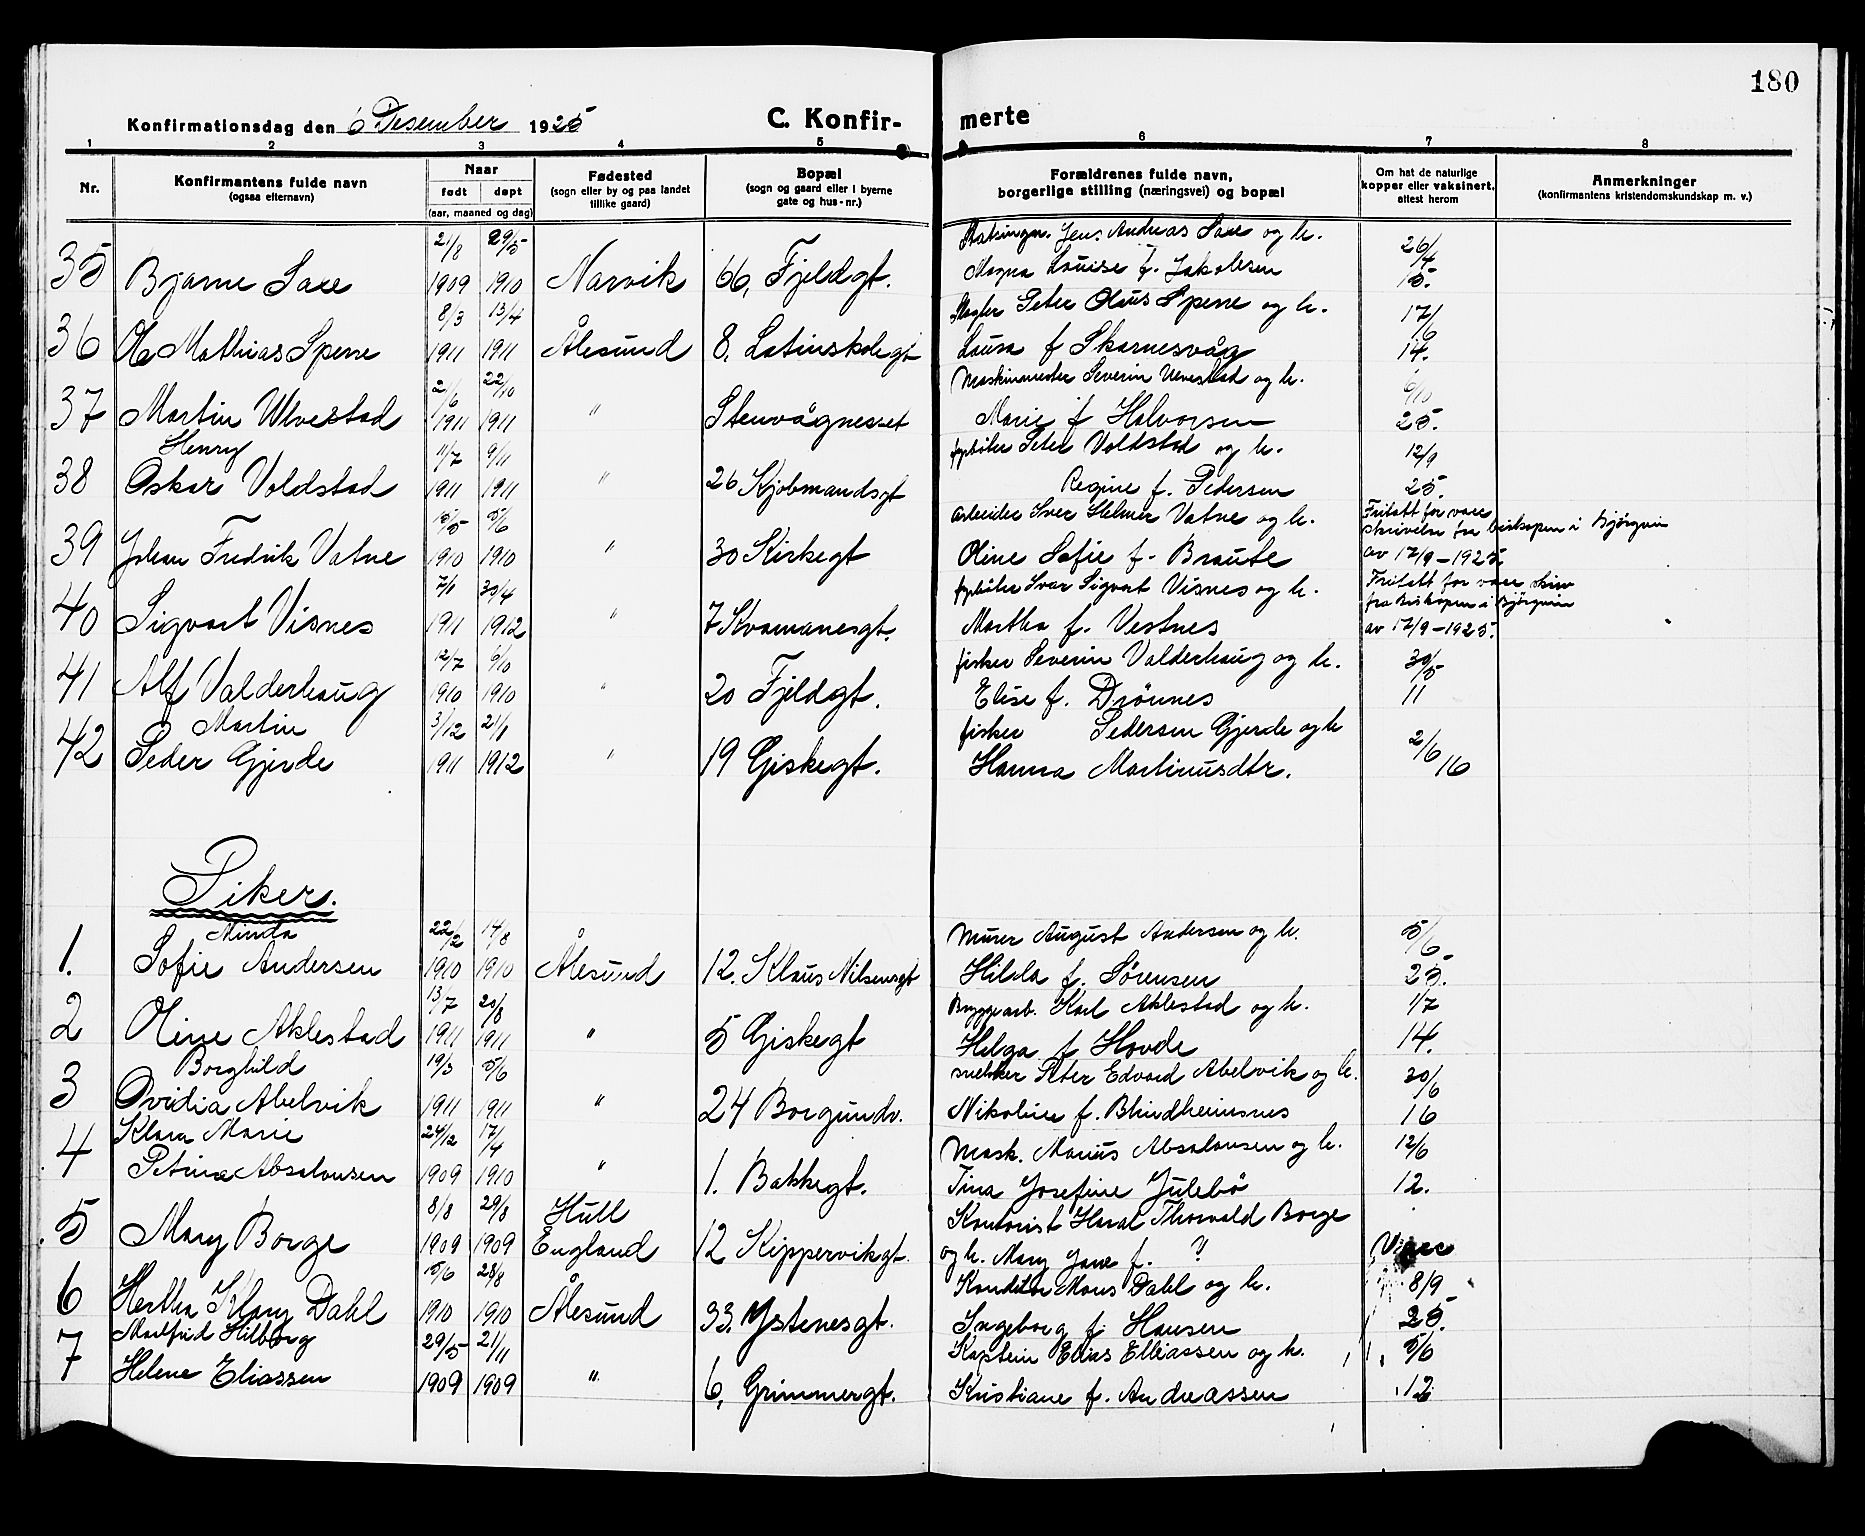 180
Konfirmationsdag den 6 Desember 1925
C. Konfirmerte
1 2 3 4 5 6 7 8
Nr.
Konfirmantens fulde navn
(ogsaa efternavn)
Naar
født døpt
(aar, maaned og dag)
Fødested
(sogn eller by og paa landet
tillike gaard)
Bopæl
(sogn og gaard eller i byerne
gate og hus-nr.)
Forældrenes fulde navn,
borgerlige stilling (næringsvei) og bopæl
Om hat de naturlige
kopper eller vaksinert,
attest herom
Anmerkninger
(konfirmantens kristendomskundskap m. v.)
21/8 29/5 Jens Andreas Saxe og h. 26/4
35 Bjarne Saxe 1909 1910 Narvik 66, Fjeldgt. Magna Louise f. Jakobsen 15.
8/3 13/4 Mægler Peter Olaus Sperre og h. 17/6
36 Ole Mathias Sperre 1911 1911 Ålesund 8, Latinskolegt Laura f Skarnesvåg 14.
2/6 22/10 Maskinmester Severin Ulvestad og h. 6/10
37 Martin Ulvestad 1911 1911 " Stenvågneset Marie f Halvorsen 25.
Henry 11/7 9/11 fyrbøter Peter Voldstad og h. 12/9
38 Oskar Voldstad 1911 1911 " 26 Kjøbmandsgt Regine f. Pedersen 25.
15/5 5/6 arbeider Iver Helmer Vatne og h. Fritatt for vacc
skrivelse fra biskopen i Bjørgvin
39 Johan Fredrik Vatne 1910 1910 " 30 Kirkegt Oline Sofie f. Braute av 17/9-1925.
7/1 30/4 fyrbøter Ivar Sigvart Visnes og h. Fritatt for vacc skriv
fra Biskopen i Bjørgvin
40 Sigvart Visnes 1911 1912 " 7 Kvamanesgt. Martha f. Vestnes av 17/9-1925.
12/7 6/10 fisker Severin Valderhaug og h. 30/5
41 Alf Valderhaug 1910 1910 " 20 Fjeldgt. Elise f. Drønnes 11
Martin 3/12 21/1 fisker Pedersen Gjerde og h 2/6
42 Peder Gjerde 1911 1912 " 19 Giskegt. Hanna Martinusdtr. 16
Piker.
Minda 22/2 14/8 Murer August Andersen og h. 5/6
1. Sofie Andersen 1910 1910 Ålesund 12. Klaus Nilsensgt Hilda f. Sørensen 25.
13/7 20/8 Bryggearb. Karl Aklestad og h. 1/7
2 Oline Aklestad 1911 1911 " 5 Giskegt Helga f Hovde 14.
Borghild 19/3 5/6 snekker Peter Edvard Abelvik og h. 20/6
3 Ovidia Abelvik 1911 1911 " 24 Borgundv. Nikoline f. Blindheimsnes 16
Klara Marie 24/12 17/4 Mask. Marius Absalonsen og h. 12/6
4 Petrine Absalonsen 1909 1910 " 1. Bakkegt. Tina Josefine Julebø 12.
8/8 29/8 Hull Kontorist Haral Thorvald Borge
5 Mary Borge 1909 1909 England 12 Kippervikgt. og h. Mary Jane f. ?
15/6 28/8 Konditor Mons Dahl og h. 8/9
6 Hertha Klary Dahl 1910 1910 Ålesund 33. Ystenesgt. Ingeborg f. Hansen 25.
Malfrid Hilborg 29/5 21/11 Kaptein Elias Eliassen og h. 5/6
7 Helene Eliassen 1909 1909 " 6, Grimmergt. Kristiane f. Andreassen 12